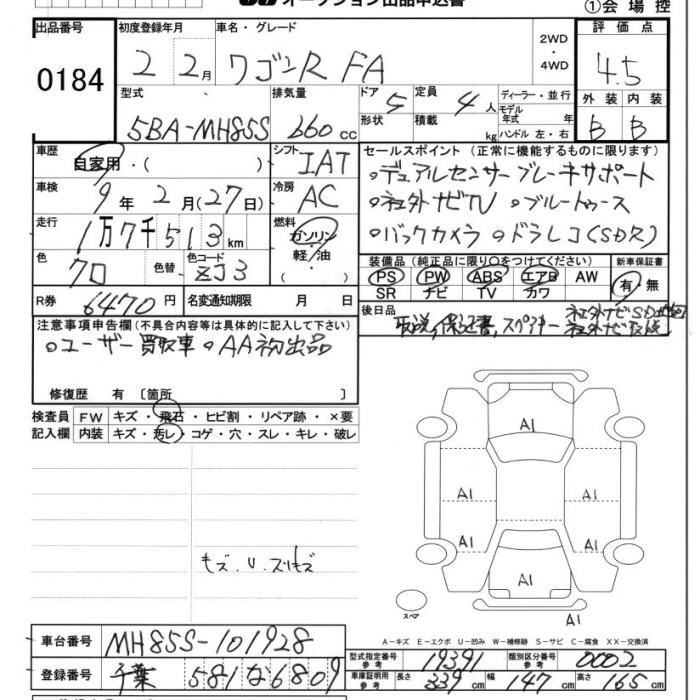 オークション出品申込書
①会場控
出品番号 初度登録年月 車名・グレード 評価点
0184 2 2月 ワゴンR FA 2WD・4WD 4.5
型式 排気量 ドア 5 定員 4人 ディーラー・並行
形状 積載 kg モデル年式 年
ハンドル 左・右
外装 内装
5BA-MH85S 660cc B B
車歴 自家用・( ) シフト IAT
車検 9年2月(27日) 冷房 AC
走行 1万7千513km 燃料 ガソリン・軽油・( )
色 クロ 色替 色コード ZJ3
R券 6470円 名変通知期限 月 日
セールスポイント (正常に機能するものに限ります)
○デュアルセンサーブレーキサポート
○社外ナビTV ○ブルートゥース
○バックカメラ ○ドラレコ(SDR)
装備品 (純正品に限り○をつけてください) 新車保証書
PS PW ABS エアB AW 有・無
SR ナビ TV カワ
後日品 取説,保証書,スペアキー 社外ナビSD
社外ナビ取説
注意事項申告欄 (不具合内容等は具体的に記入して下さい)
○ユーザー買取車 ○AA初出品
修復歴 有 〔箇所 〕
検査員記入欄 FW キズ・飛石・ヒビ割・リペア跡・×要
内装 キズ・汚レ・コゲ・穴・スレ・キレ・破レ
キズ.U.スリキズ
A1
A1
A1
A1
A1
A1
A1
スペア
A1
A-キズ E-エクボ U-凹み W-補修跡 S-サビ C-腐食 XX-交換済
車台番号 MH85S-101928
登録番号 千葉 581 な 6809
型式指定番号参考 19391 類別区分番号参考 0002
車庫証明用参考 長さ 339cm 幅 147cm 高さ 165cm